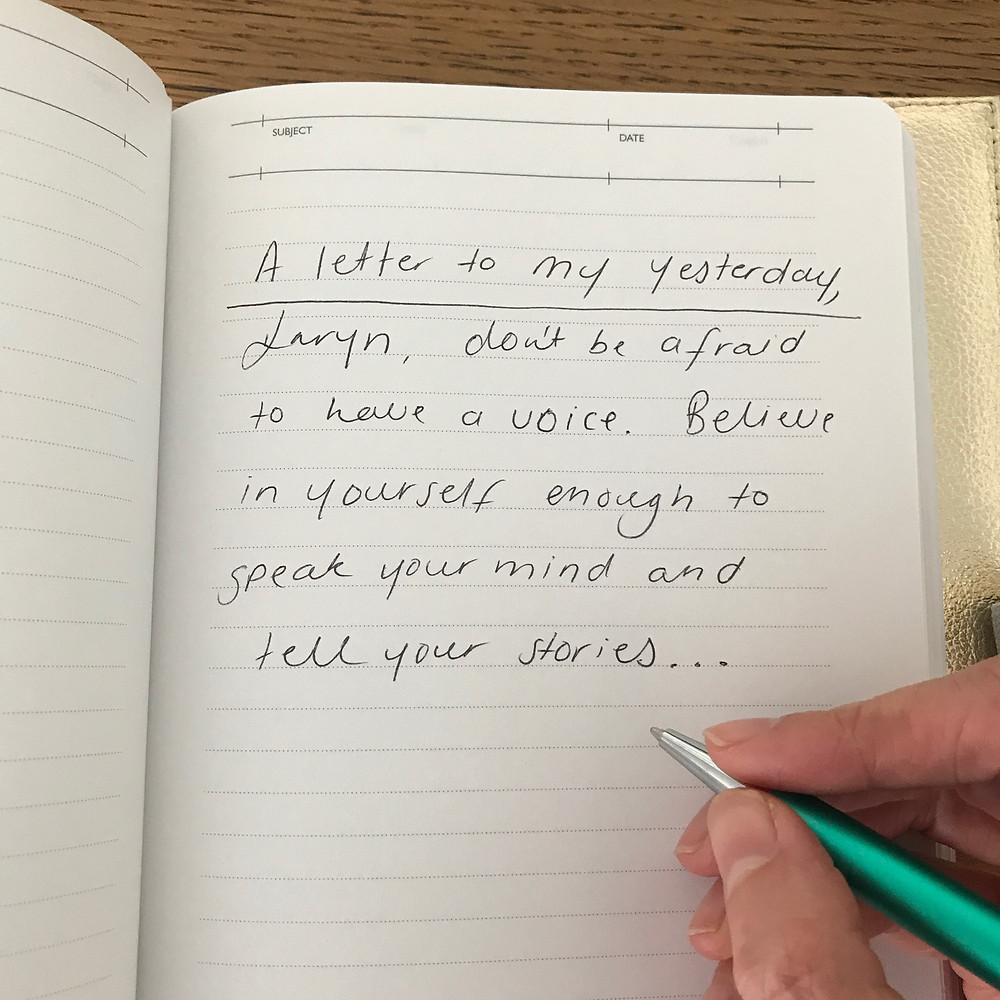 SUBJECT DATE
A letter to my yesterday,
Laryn, don't be afraid
to have a voice. Believe
in yourself enough to
speak your mind and
tell your stories...